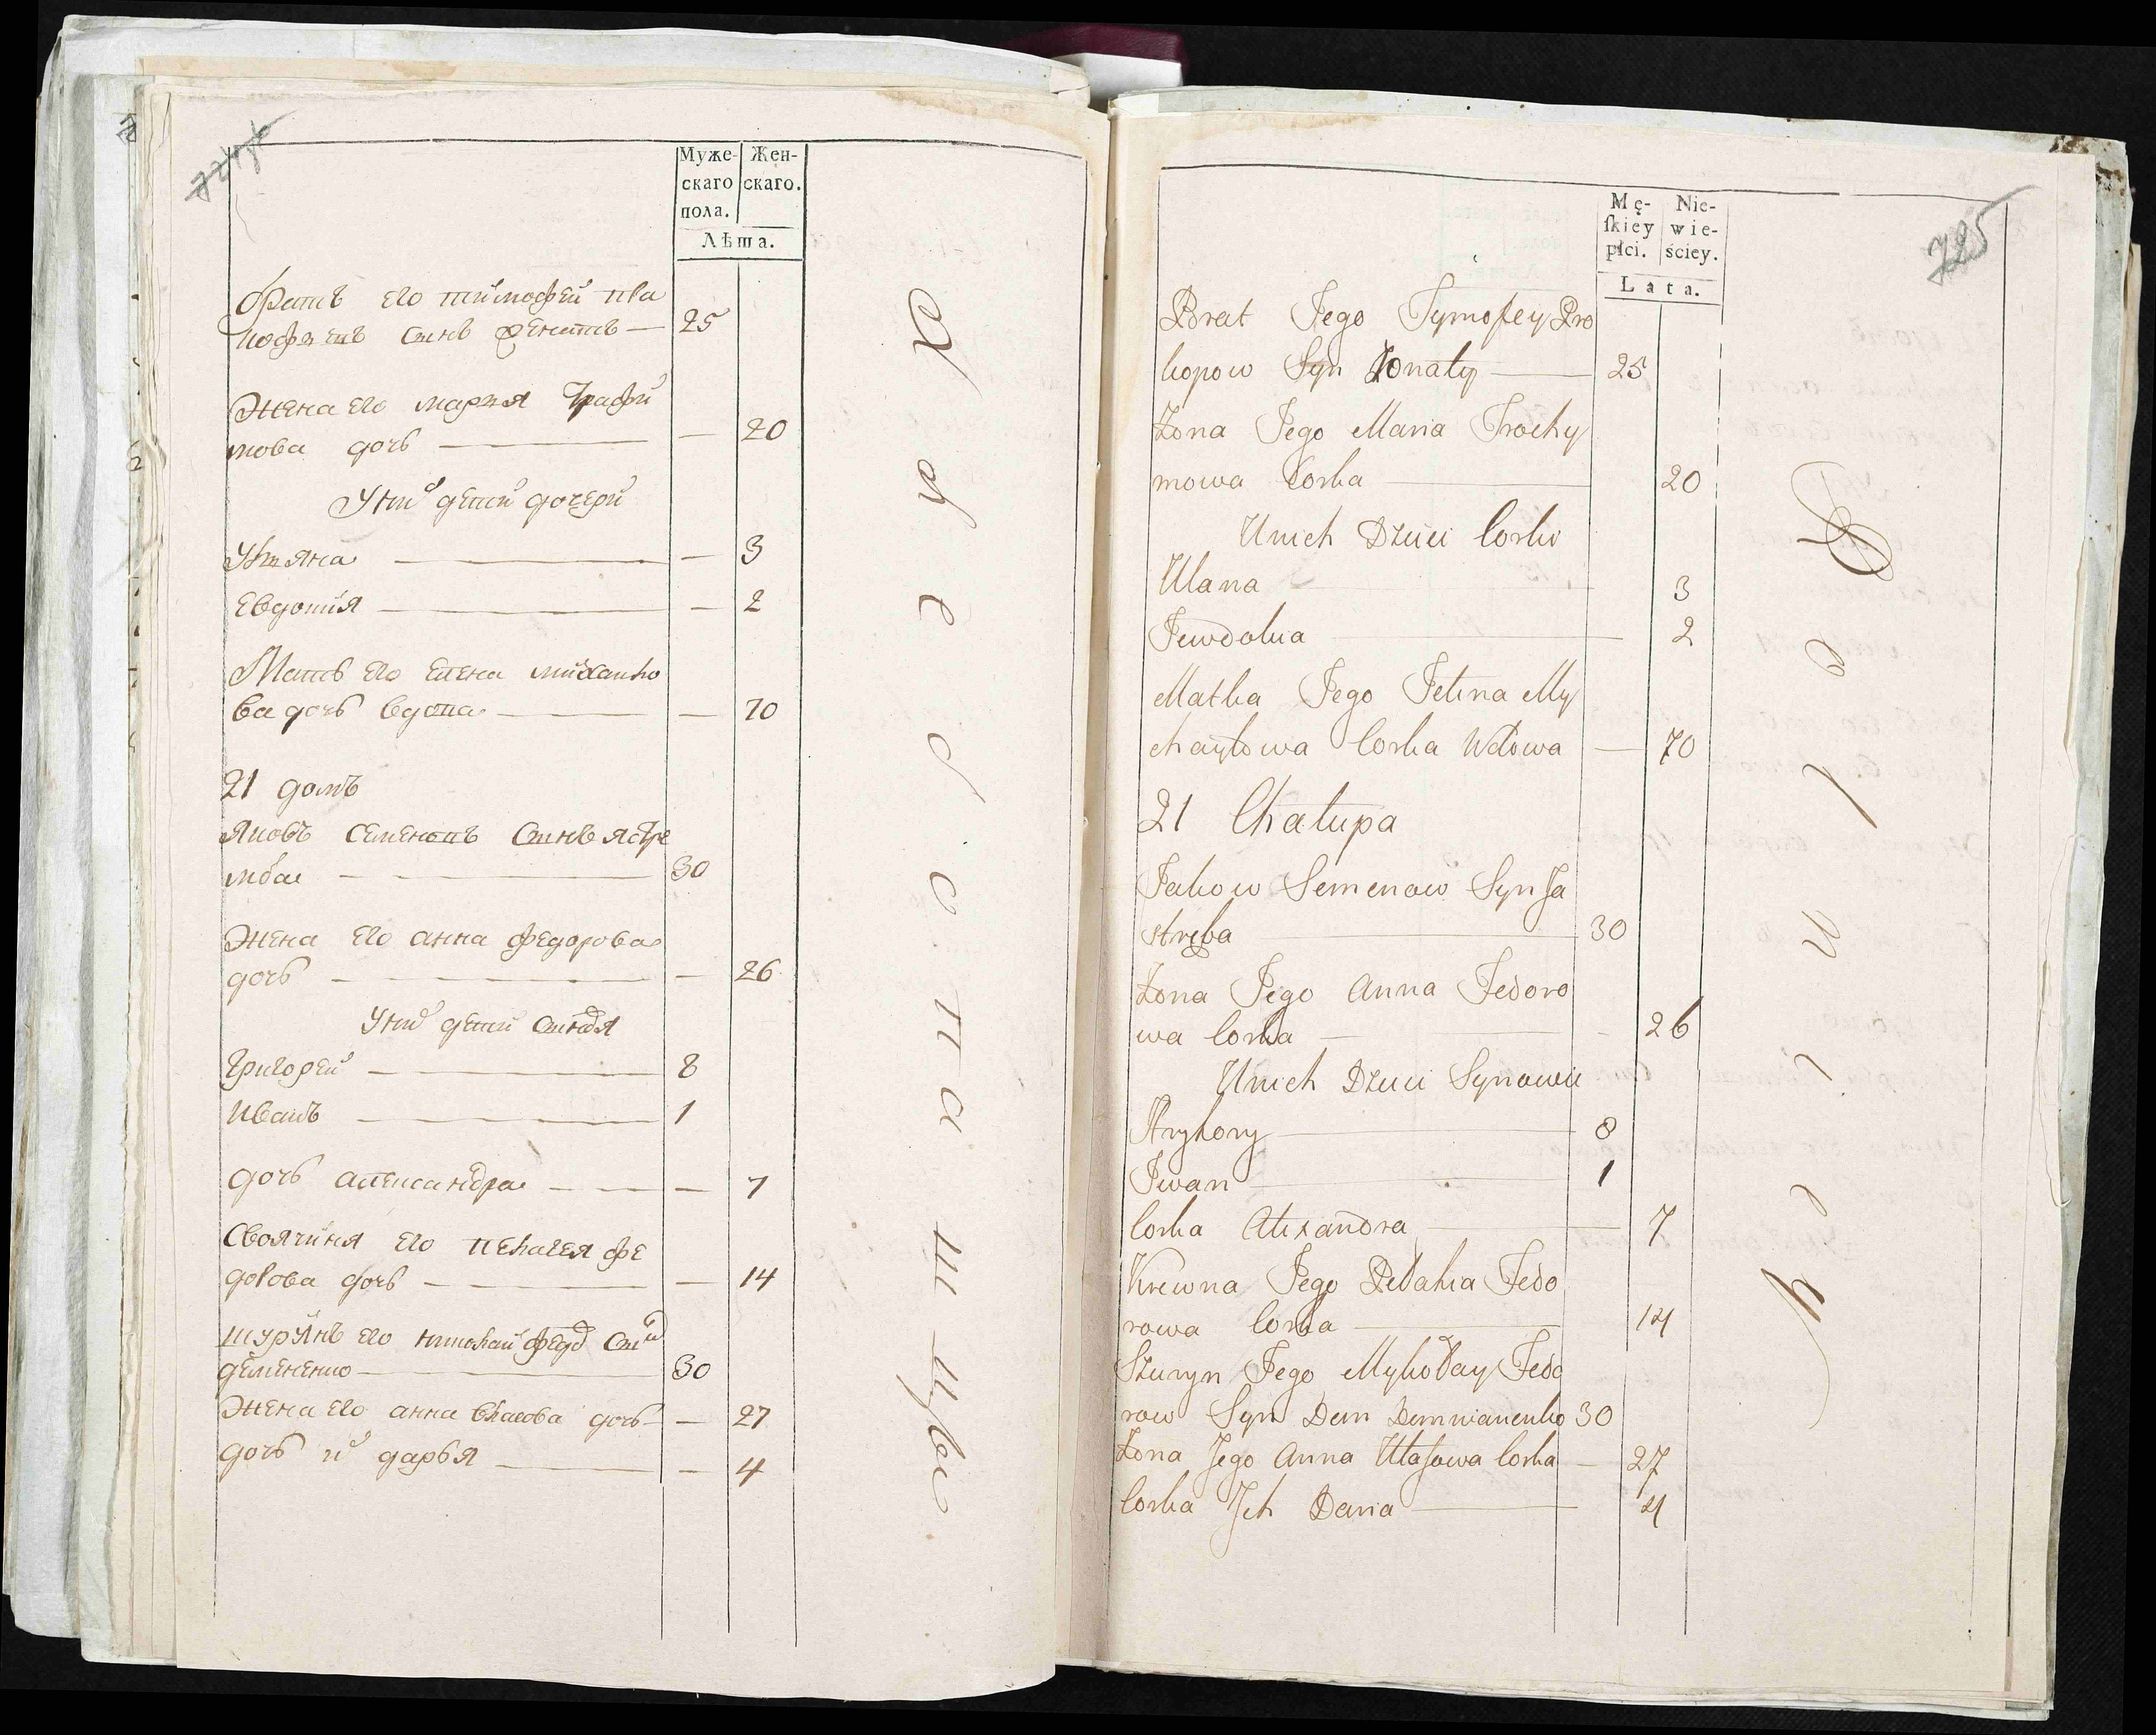 Муже-
скаго
пола.
Жен-
скаго.
Лѣта.
братъ его тимофей про
кофьевъ сынъ женатъ — 25
Жена его марья Трафи
мова дочь — — 20
У них дети дочери
Ульяна — — 3
Евдокия — — 2
Мать его елена михайло
ва дочь вдова — — 70
21 домъ
Яковъ семеновъ сынъ ястре
мба — 30
Жена его анна федорова
дочь — — 26
У них дети сыновья
Григорей — 8
Иванъ — 1
дочь александра — — 7
Своячиня его пелагея фе
дорова дочь — — 14
шуринъ его николай федо сын
деменченко — 30
Жена его анна власова дочь — — 27
дочь их дарья — — 4
725
Mę-
ſkiey
płci.
Nie-
wie-
ściey.
Lata.
Brat Jego Tymofey Pro
kopow Syn Żonaty — 25
Żona Jego Maria Trochy
mowa Corka — 20
Unich Dzieci Corki
Ulana 3
Jewdokia — 2
Matka Jego Jelena My
chayłowa Corka Wdowa — 70
21 Chałupa
Jakow Semenow Syn Ja
stręba — 30
Żona Jego Anna Fedoro
wa Corka — 26
Unich Dzieci Synowie
Hryhory — 8
Iwan — 1
Corka Alexandra — 7
Krewna Jego Pełahia Fedo
rowa Corka — 14
Szuryn Jego Mykołay Fedo
row Syn Dem Demianenko 30
Żona Jego Anna Ułasowa Corka — 27
Corka Ich Daria — 4